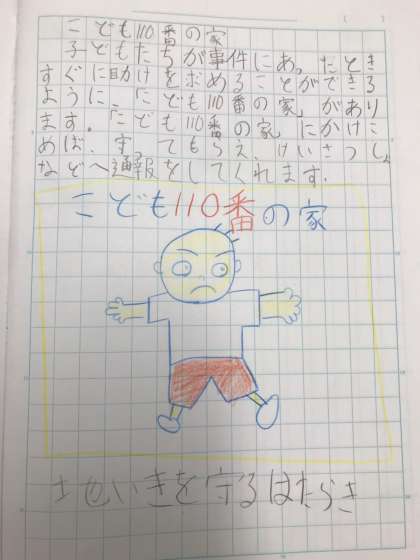 こども110番の家
子どもたちが事件にあったとき
すぐに助けを求めることができる
ように、「こども110番の家」があり
ます。「こども110番の家」にかけこ
めば、守ってもらえ、けいさつしょ
などへ通報をしてくれます。
こども110番の家
地いきを守るはたらき